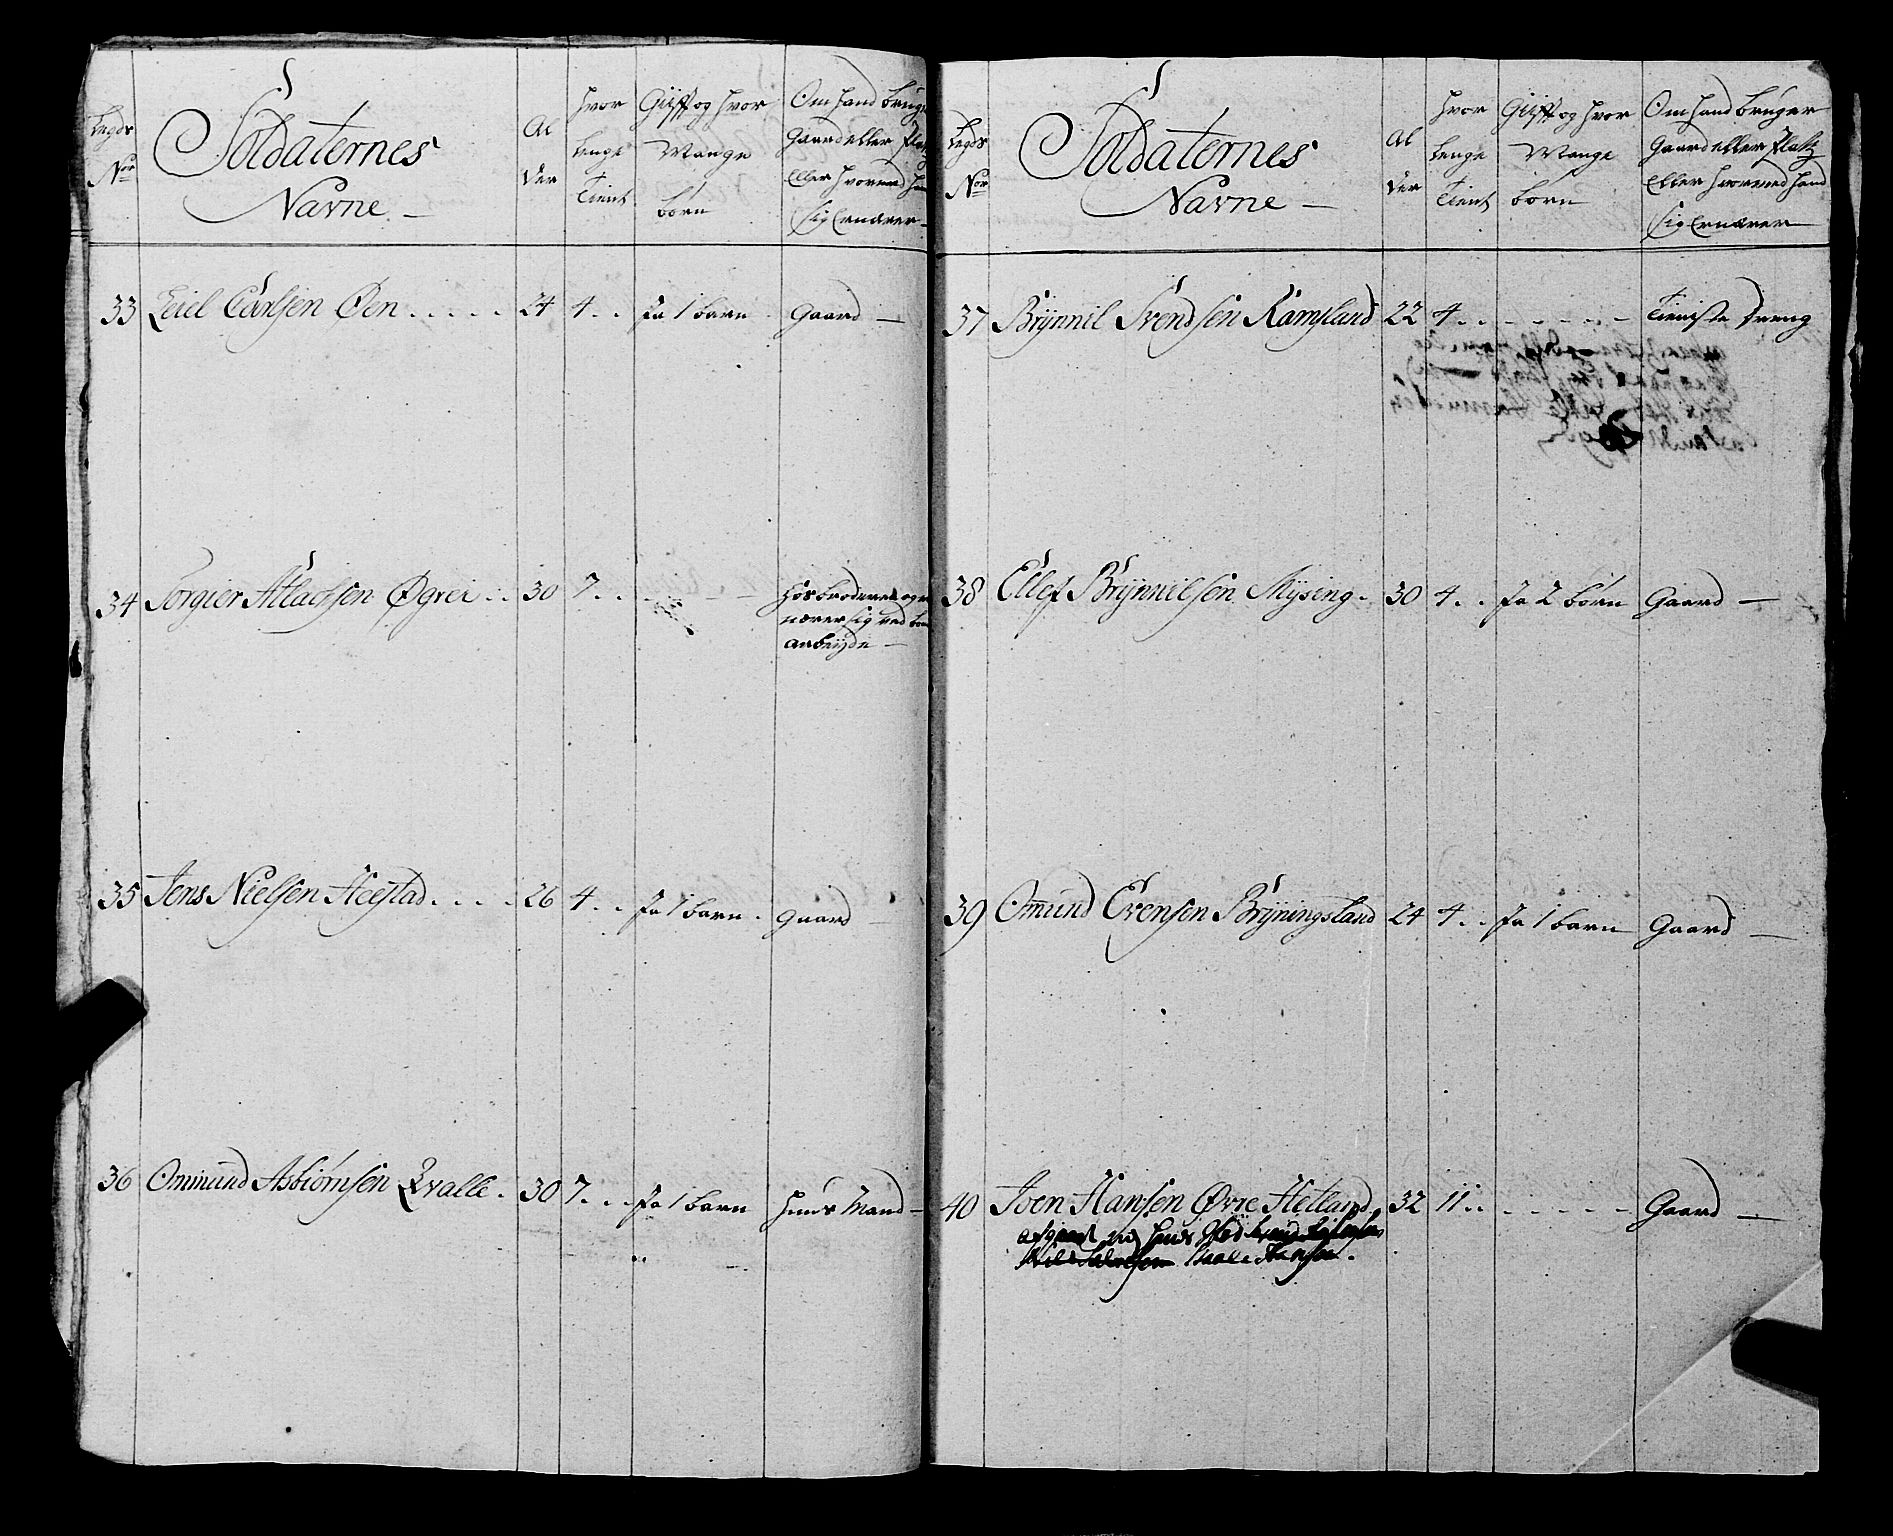 Legds
Nor
Soldaternes
Navne
Al
der
hvor
lenge
Tient
Gift og hvor
Mange
børn
Om hand bruger
Gaard eller
Eller hvormed
sig Ernærer
33 Leiel Carlsen Øen 24 4 Ja 1 barn Gaard
34 Torgier Atlachsen Øgrei 30 7 hos broderen og er
nærer sig ved
arbeyde
35 Jens Nielsen Heestad 26 4 Ja 1 barn gaard
36 Ommund Asbiørnsen Qvalle 30 7 Ja 1 barn huus Mand
Legds
Nor
Soldaternes
Navne
Al
der
hvor
lenge
Tient
Gift og hvor
Mange
børn
Om hand bruger
gaard eller Platz
Eller hvormed hand
sig Ernærer
37 Brÿnnil Svendsen Ramsland 22 4 Tieniste Dreng
38 Ellef Brÿnnilsen Mÿsing 30 4 Ja 2 børn Gaard
39 Omund Evensen Brÿningsland 24 4 Ja 1 barn Gaard
40 Joen Hansen Øvre Hetland 32 11 Gaard
afgaaet og hans
Hansen